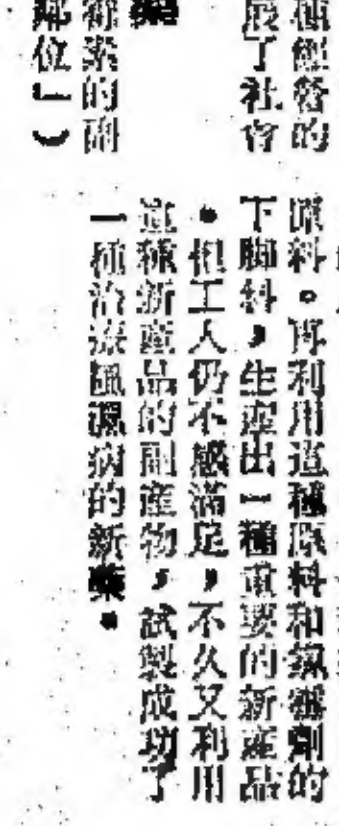 種經營的
展了社會
素的副
位」）
原料。再利用這種原料和劑的
下脚料，生產出一種重要的新產品
。但工人仍不感滿足，不久又利用
這種新產品的副產物，試製成功了
一種治療風濕病的新藥。